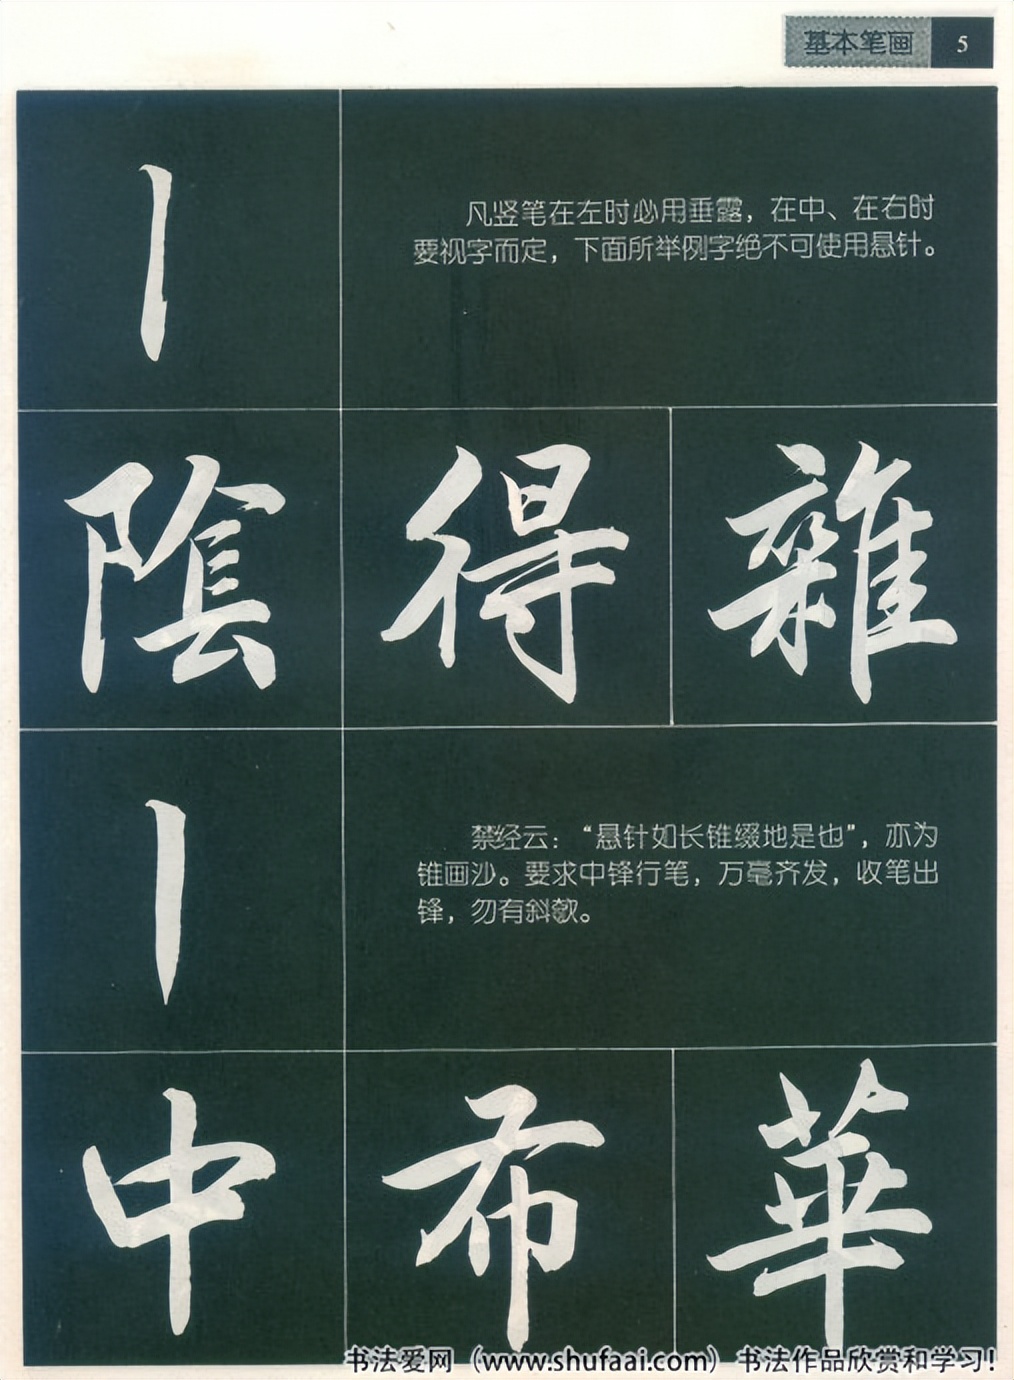 基本笔画 5
丨
凡竖笔在左时必用垂露，在中、在右时
要视字而定，下面所举例字绝不可使用悬针。
陰 得 雜
丨
禁经云：“悬针如长锥缀地是也”，亦为
锥画沙。要求中锋行笔，万毫齐发，收笔出
锋，勿有斜欹。
中 布 華
书法爱网（www.shufaai.com）书法作品欣赏和学习！